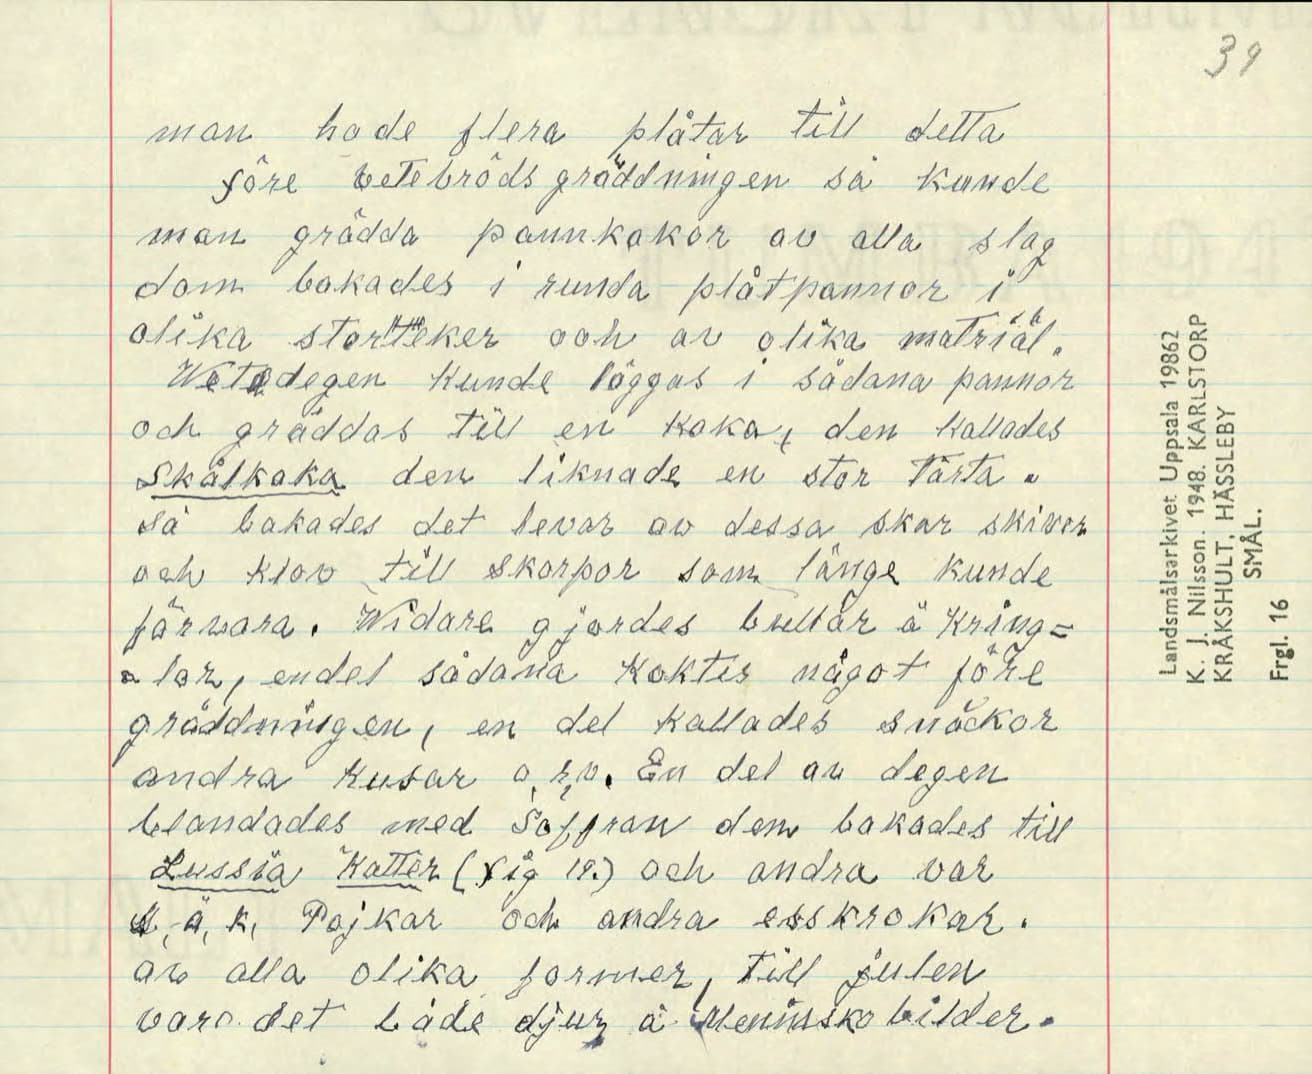 39
man hade flera plåtar till detta
före vetebröds gräddningen så kunde
man grädda pannkakor av alla slag
dom bakades i runda plåtpannor i
olika storlteker och av olika matriäl.
Wetedegen kunde läggas i sådana pannor
och gräddas till en kaka, den kallades
Skålkaka den liknade en stor Tårta.
så bakades det levar av dessa skar skivor
och klov till skorpor som länge kunde
förvara. Widare gjordes bullar å Kring=
=lor, endel sådana koktes något före
gräddningen, en del kallades snäckor
andra Kusar o,s,v. En del av degen
blandades med Saffran dem bakades till
Lussia Katter (fig 19.) och andra var
s, å, k, Pojkar och andra esskrokar.
av alla olika former, till julen
vara det både djur å Menniskobilder.
Landsmålsarkivet Uppsala 19862
K. J. Nilsson. 1948. KARLSTORP
KRÅKSHULT, HÄSSLEBY
SMÅL.
Frgl. 16